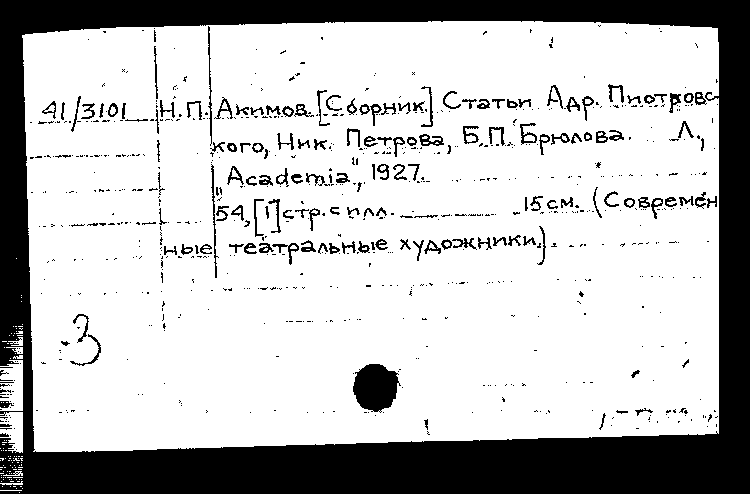 41/3101 Н.П. Акимов. [Сборник] Статьи Адр. Пиотровс-
кого, Ник. Петрова, Б.П. Брюлова. Л.,
"Academia", 1927.
54, [1] стр. с илл. 15 см. (Современ
ные театральные художники).
3